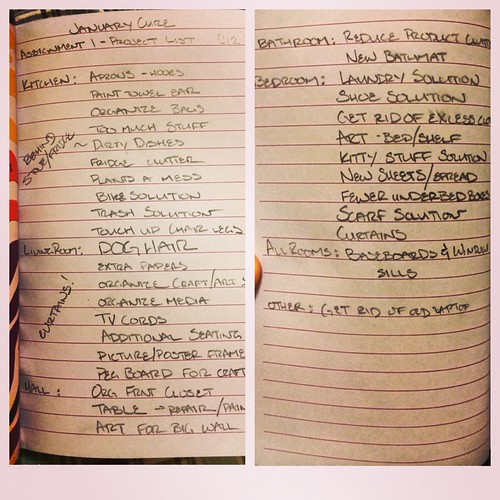 JANUARY CURE
ASSIGNMENT 1 - PROJECT LIST (1/2)
KITCHEN: APRONS - HOOKS
PAINT TOWEL BAR
ORGANIZE BAGS
TOO MUCH STUFF
BEHIND STOVE/FRIDGE ~ DIRTY DISHES
FRIDGE CLUTTER
PLANTS A MESS
BIKE SOLUTION
TRASH SOLUTION
TOUCH UP CHAIR LEGS
LIVING ROOM: DOG HAIR
EXTRA PAPERS
ORGANIZE CRAFT/ART S
CURTAINS! ORGANIZE MEDIA
TV CORDS
ADDITIONAL SEATING
PICTURE/POSTER FRAME
PEG BOARD FOR CRAFT
HALL: ORG FRNT CLOSET
TABLE → REPAIR/PAIN
ART FOR BIG WALL
BATHROOM: REDUCE PRODUCT CLUTTE
NEW BATHMAT
BEDROOM: LAUNDRY SOLUTION
SHOE SOLUTION
GET RID OF EXCESS CLO
ART - BED/SHELF
KITTY STUFF SOLUTION
NEW SHEETS/SPREAD
FEWER UNDERBED BOXES
SCARF SOLUTION
CURTAINS
ALL ROOMS: BASEBOARDS & WINDOW
SILLS
OTHER: GET RID OF OLD LAPTOP